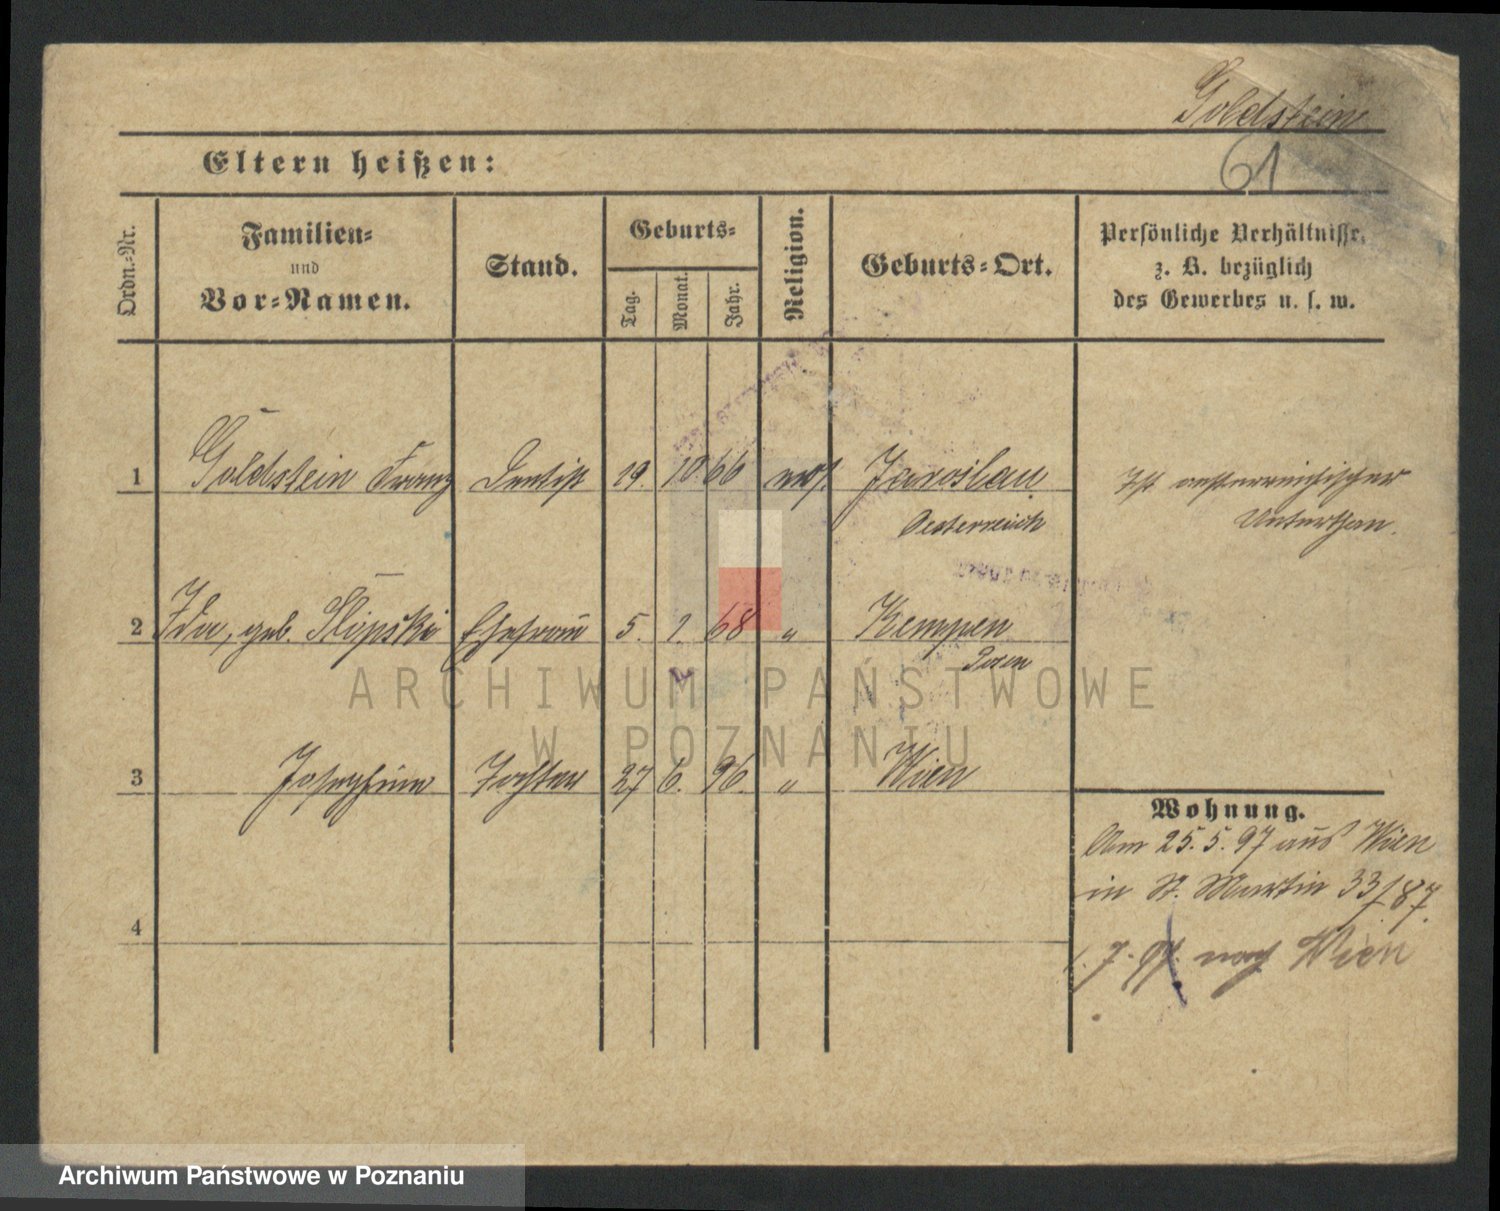 Goldstein
61
Eltern heißen:
Ordn.-Nr.
Familien-
und
Vor-Namen.
Stand.
Geburts-
Tag.
Monat.
Jahr.
Religion.
Geburts-Ort.
Persönliche Verhältnisse,
z. B. bezüglich
des Gewerbes u. s. w.
1 Goldstein Franz Dentist 19. 10. 66 mos. Jaroslau Ist oesterreichischer
Oesterreich Unterthan.
2 Ida, geb. Slipski Ehefrau 5. 1. 68 " Kempen
Posen
ARCHIWUM PAŃSTWOWE
W POZNANIU
3 Josephine Tochter 27 6. 96. " Wien
Wohnung.
Am 25. 5. 97 aus Wien
in St. Martin 33/87.
4
1. 7. 97. nach Wien
Archiwum Państwowe w Poznaniu